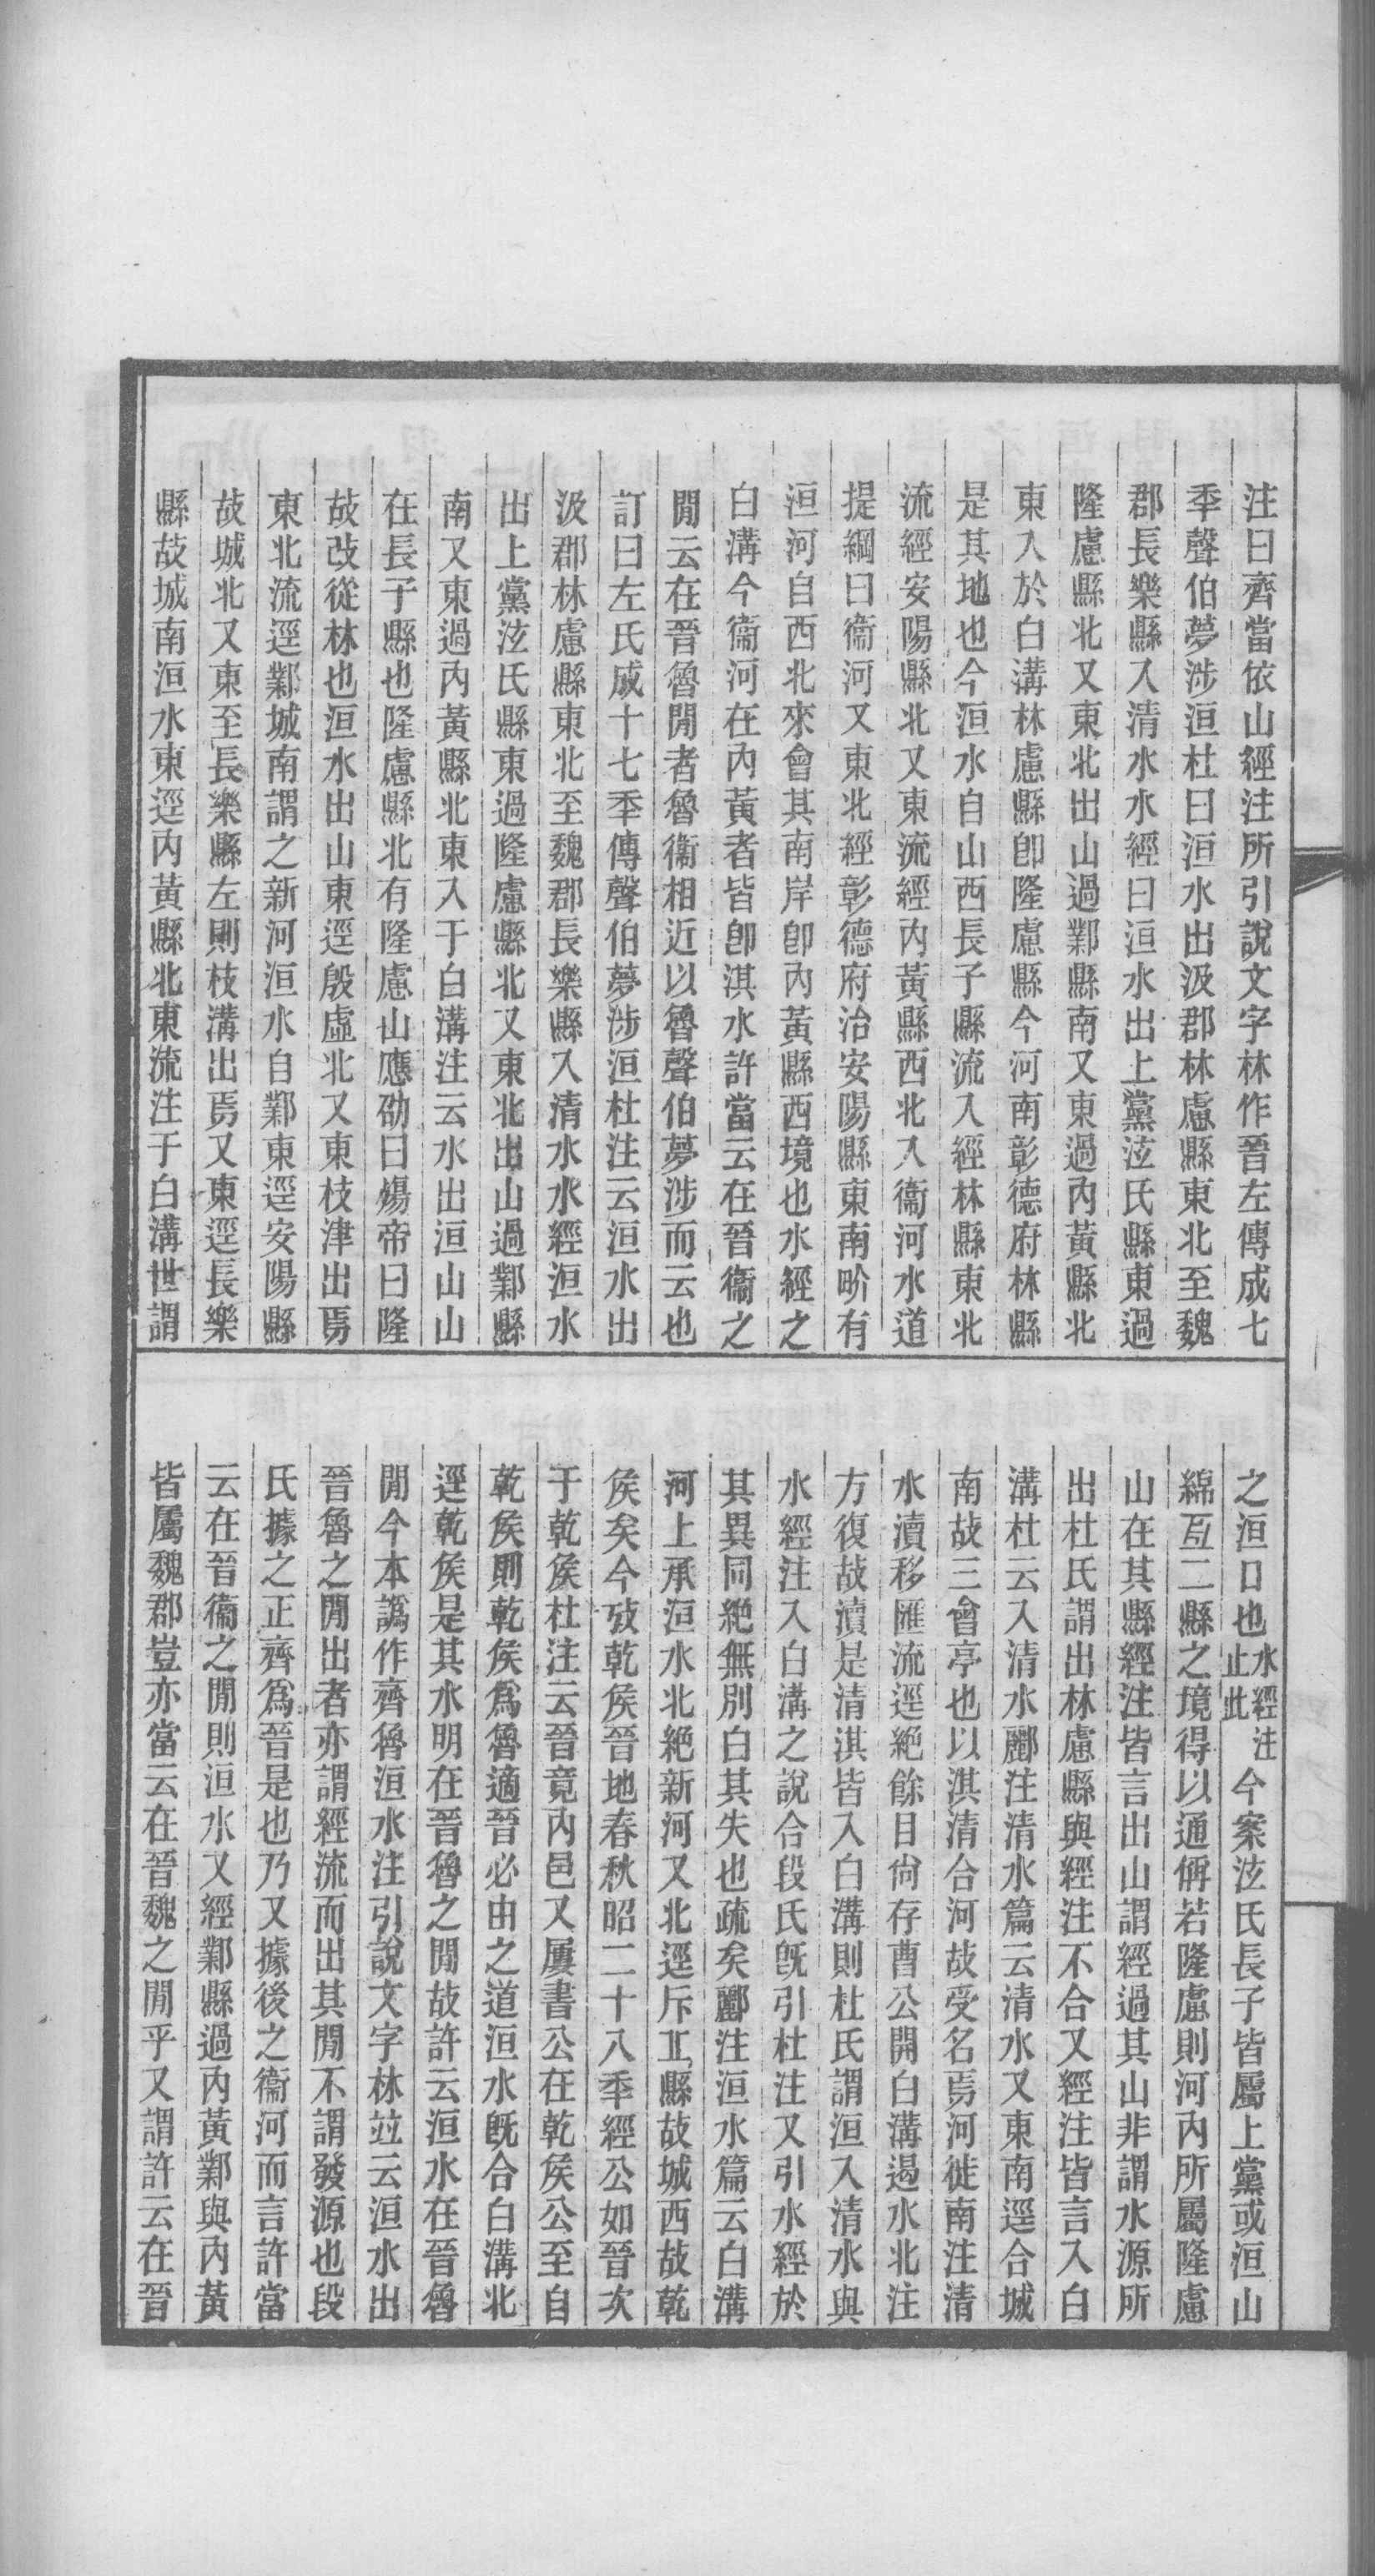 注曰齊當依山經注所引說文字林作晉左傳成七
季聲伯夢涉洹杜曰洹水出汲郡林慮縣東北至魏
郡長樂縣入清水水經曰洹水出上黨泫氏縣東過
隆慮縣北又東北出山過鄴縣南又東過內黃縣北
東入於白溝林慮縣卽隆慮縣今河南彰德府林縣
是其地也今洹水自山西長子縣流入經林縣東北
流經安陽縣北又東流經內黃縣西北入衞河水道
提綱曰衞河又東北經彰德府治安陽縣東南㽞有
洹河自西北來會其南岸卽內黃縣西境也水經之
白溝今衞河在內黃者皆卽淇水許當云在晉衞之
閒云在晉魯閒者魯衞相近以魯聲伯夢涉而云也
訂曰左氏成十七季傳聲伯夢涉洹杜注云洹水出
汲郡林慮縣東北至魏郡長樂縣入清水水經洹水
出上黨泫氏縣東過隆慮縣北又東北出山過鄴縣
南又東過內黃縣北東入于白溝注云水出洹山山
在長子縣也隆慮縣北有隆慮山應劭曰煬帝曰隆
故改從林也洹水出山東逕殷虛北又東枝津出焉
東北流逕鄴城南謂之新河洹水自鄴東逕安陽縣
故城北又東至長樂縣左則枝溝出焉又東逕長樂
縣故城南洹水東逕內黃縣北東流注于白溝世謂
之洹口也水經注止此今案泫氏長子皆屬上黨或洹山
綿亙二縣之境得以通偁若隆慮則河內所屬隆慮
山在其縣經注皆言出山謂經過其山非謂水源所
出杜氏謂出林慮縣與經注不合又經注皆言入白
溝杜云入清水酈注清水篇云清水又東南逕合城
南故三會亭也以淇清合河故受名焉河徙南注清
水瀆移匯流逕絕餘目尙存曹公開白溝遏水北注
方復故瀆是清淇皆入白溝則杜氏謂洹入清水與
水經注入白溝之說合段氏旣引杜注又引水經於
其異同絕無別白其失也疏矣酈注洹水篇云白溝
河上承洹水北絕新河又北逕斥丠縣故城西故乾
矦矣今攷乾矦晉地春秋昭二十八季經公如晉次
于乾矦杜注云晉竟內邑又屢書公在乾矦公至自
乾矦則乾矦爲魯適晉必由之道洹水旣合白溝北
逕乾矦是其水明在晉魯之閒故許云洹水在晉魯
閒今本譌作齊魯洹水注引說文字林竝云洹水出
晉魯之閒出者亦謂經流而出其閒不謂發源也段
氏據之正齊爲晉是也乃又據後之衞河而言許當
云在晉衞之閒則洹水又經鄴縣過內黃鄴與內黃
皆屬魏郡豈亦當云在晉魏之閒乎又謂許云在晉